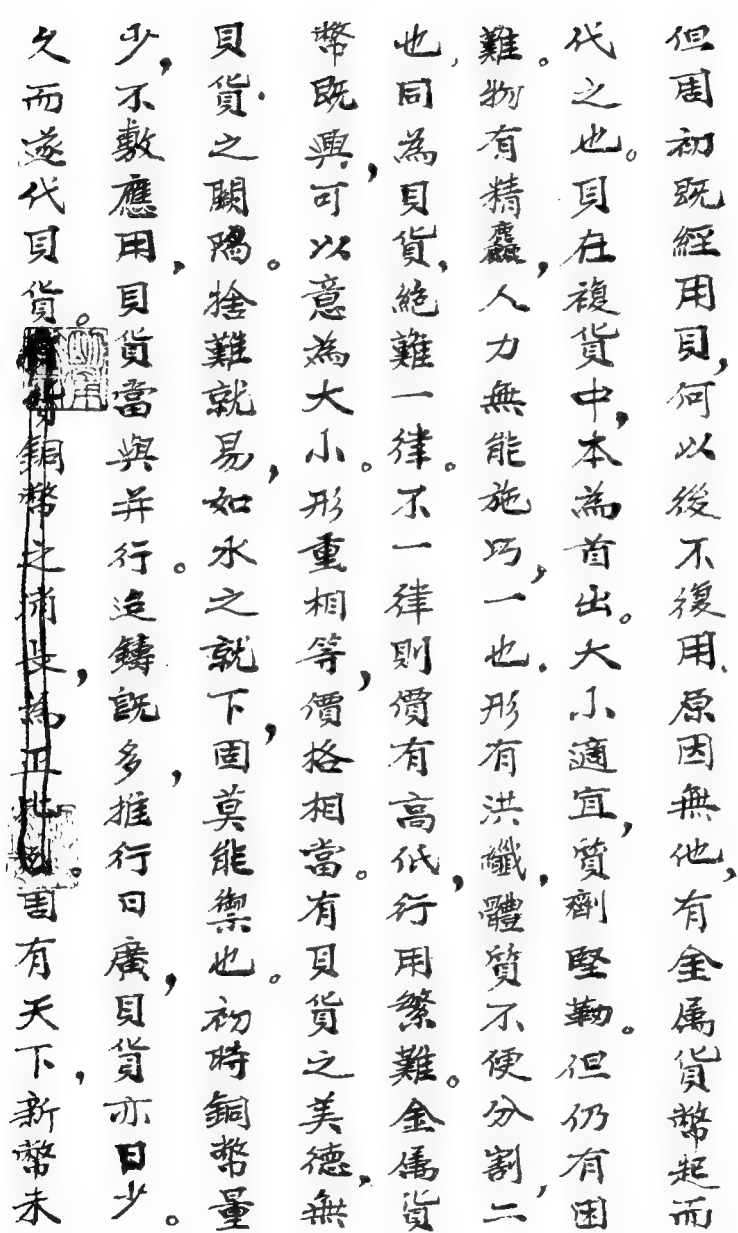 但周初既經用貝，何以後不復用、原因無他，有金属貨幣起而
代之也。貝在複貨中，本為首出。大小適宜，質劑堅勒。但仍有困
難。物有精麤，人力無能施巧，一也．形有洪纖，體質不便分割，二
也，同為貝貨，絕難一律。不一律則價有高低，行用繁難。金属貨
幣既興，可以意為大小。形重相等，價格相當。有貝貨之美德，無
貝貨．之闕陷。捨難就易，如水之就下，固莫能禦也。初時銅幣量
少，不敷應用，貝貨當與并行。迨鑄既多，推行日廣，貝貨亦日少。
久而遂代貝貨。銅幣之消長，為正比例。周有天下，新幣未